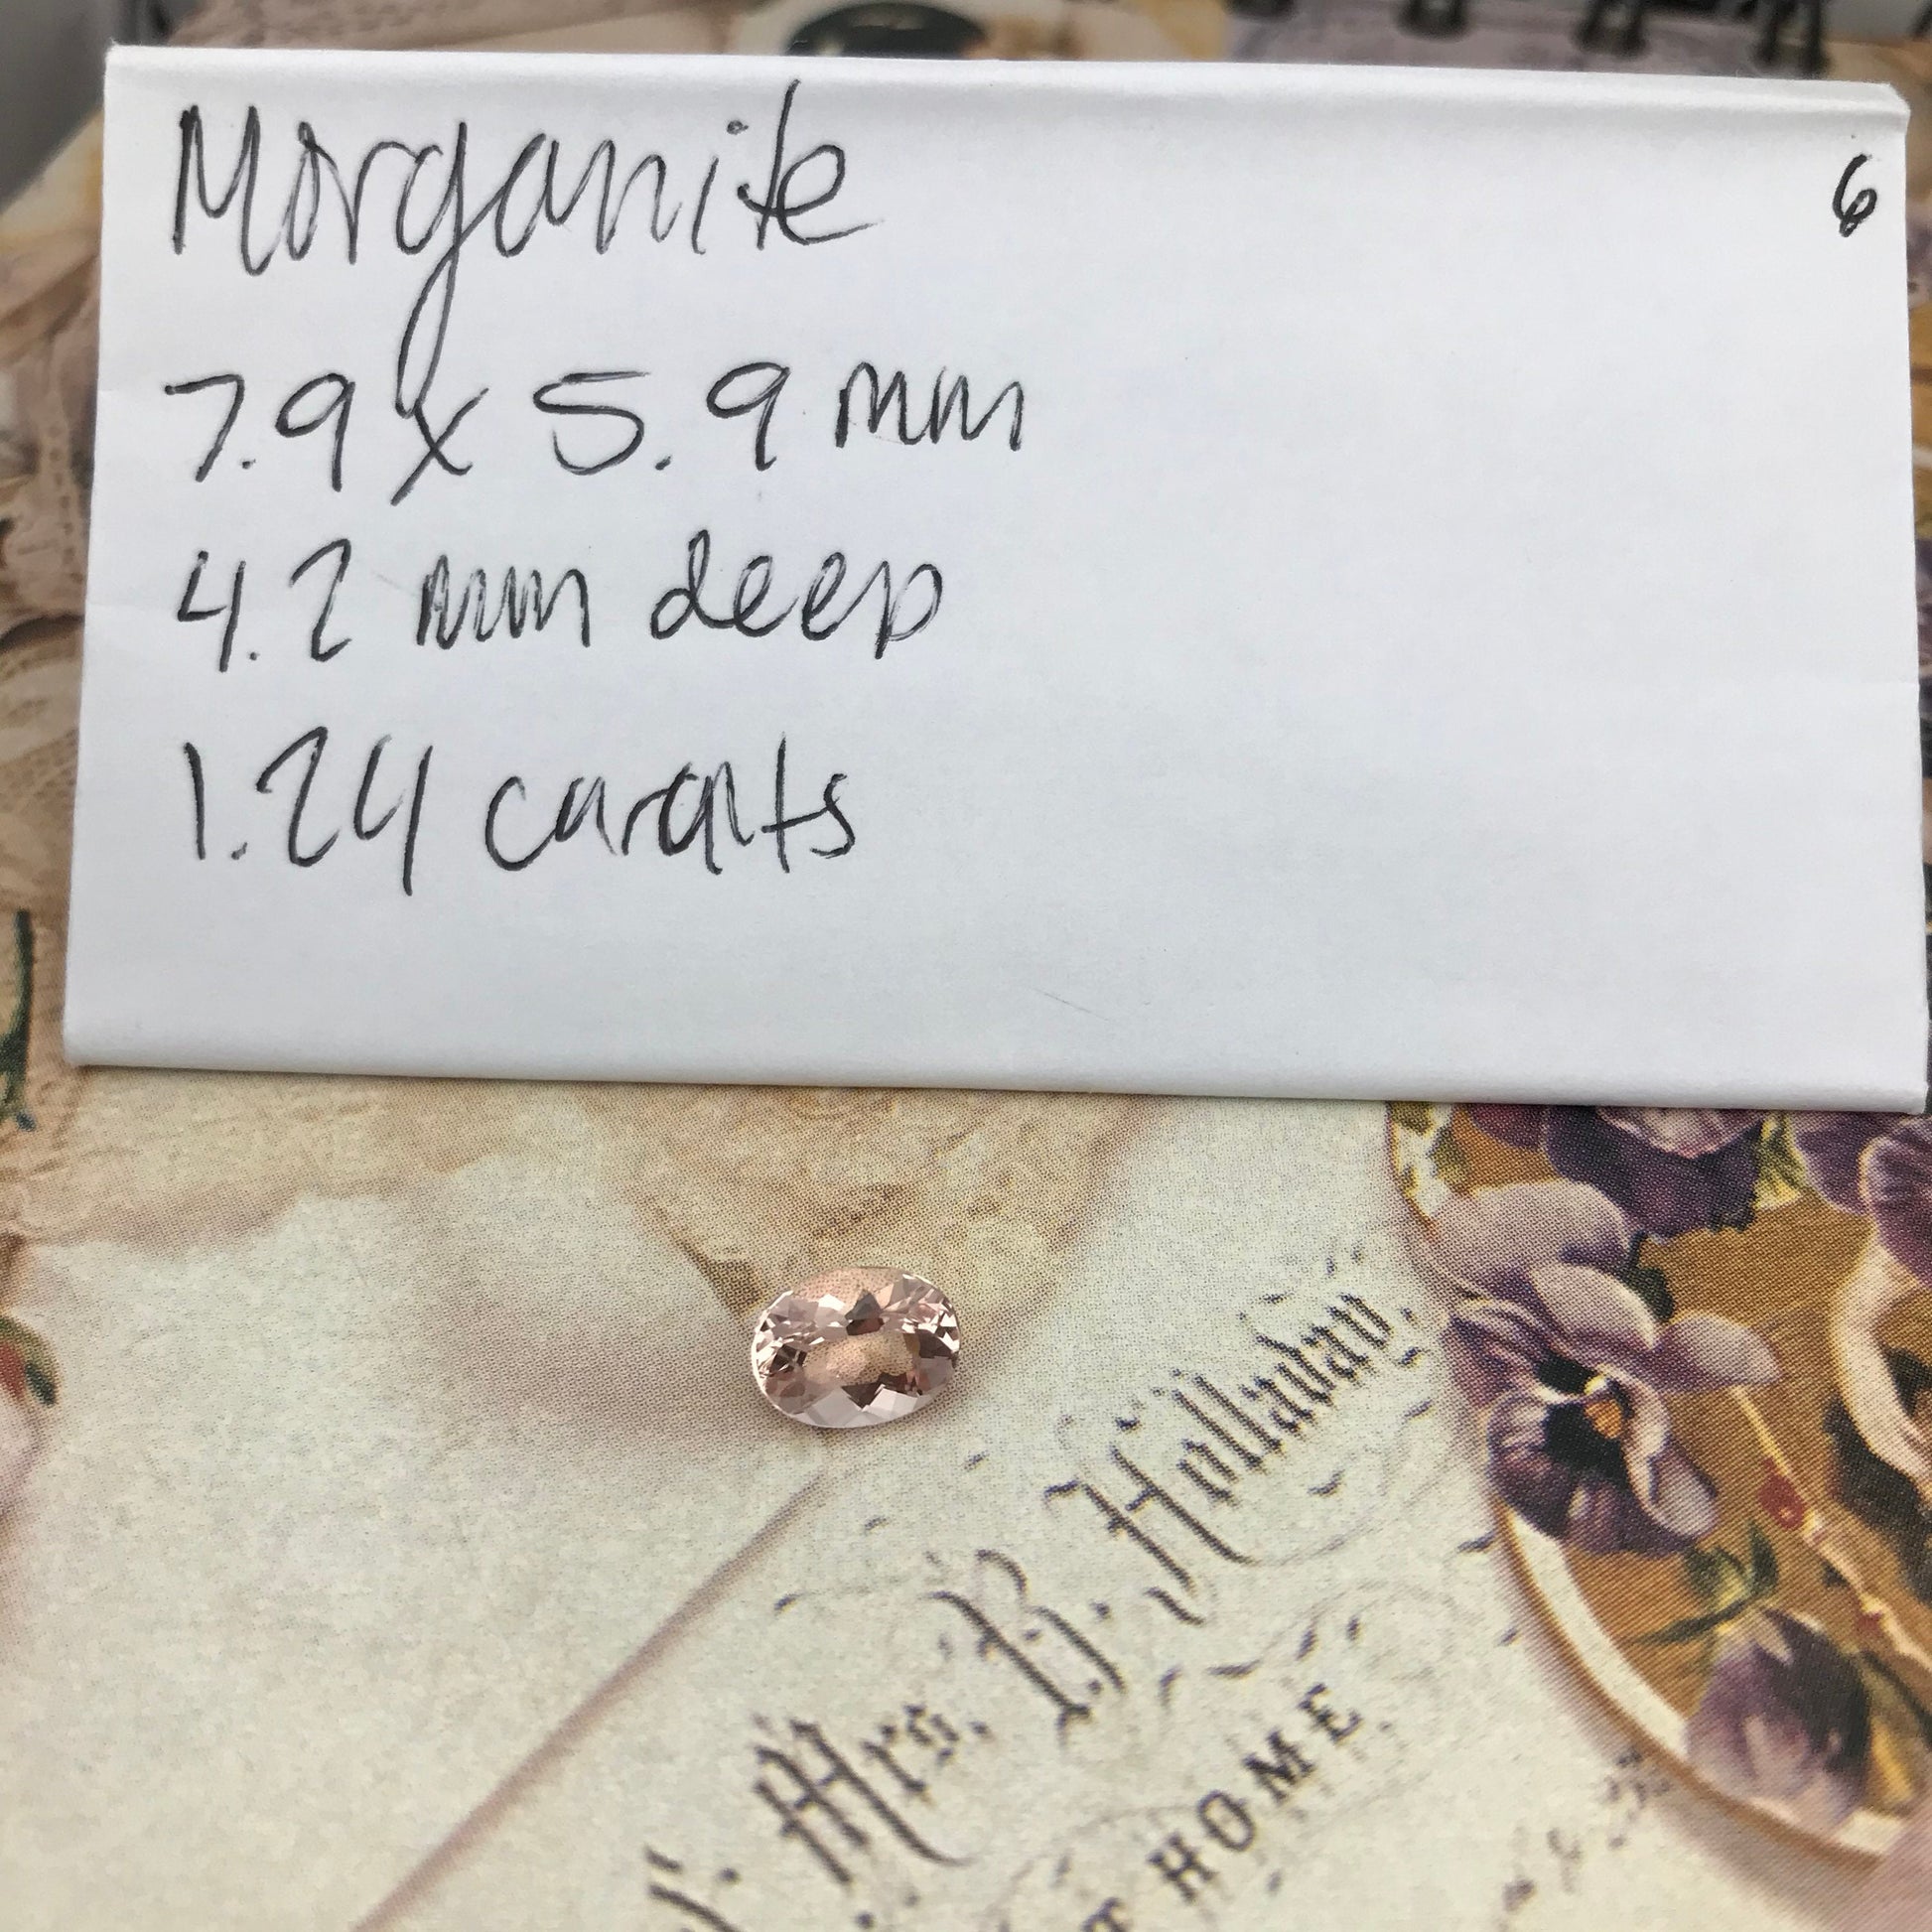 Morganite
6
7.9 x 5.9 mm
4.2 mm deep
1.24 carats
Mrs. B. Hollavay.
HOME